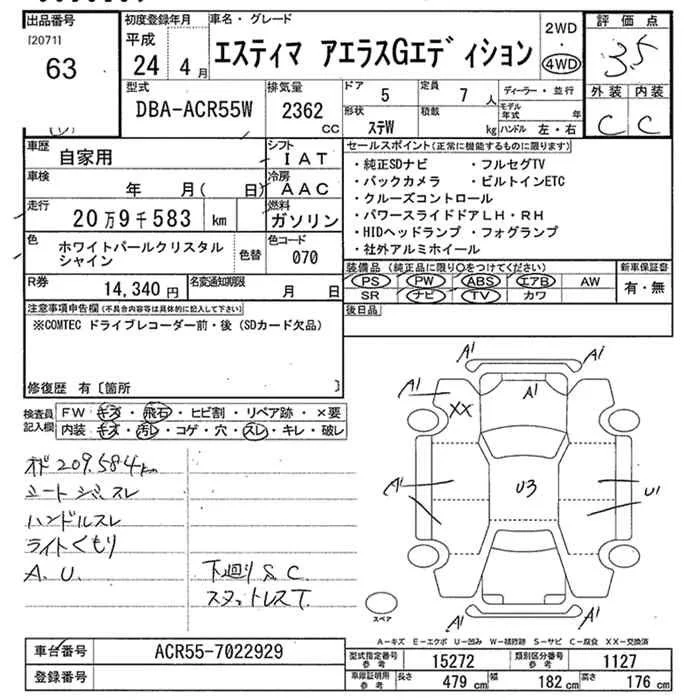 出品番号
[20711]
63
初度登録年月
平成
24 4月
車名・グレード
エスティマ アエラスGエディション
2WD
・
4WD
評価点
3.5
外装 内装
C C
型式
DBA-ACR55W
排気量
2362
CC
ドア
5
定員
7人
形状
ステW
積載
kg
ディーラー・並行
モデル年式 年
ハンドル 左・右
車歴
自家用
シフト
IAT
車検
年 月( 日)
冷房
AAC
走行
20万9千583 km
燃料
ガソリン
色
ホワイトパールクリスタルシャイン
色替
色コード
070
R券
14,340円
名変通知期限
月 日
セールスポイント(正常に機能するものに限ります)
・純正SDナビ ・フルセグTV
・バックカメラ ・ビルトインETC
・クルーズコントロール
・パワースライドドアLH・RH
・HIDヘッドランプ ・フォグランプ
・社外アルミホイール
装備品(純正品に限り○をつけてください)
PS PW ABS エアB AW
SR ナビ TV カワ
新車保証書
有・無
後日品
注意事項申告欄(不具合内容等は具体的に記入して下さい)
※COMTEC ドライブレコーダー前・後(SDカード欠品)
修復歴 有[箇所 ]
検査員記入欄
FW キズ・飛石・ヒビ割・リペア跡・×要
内装 キズ・汚レ・コゲ・穴・スレ・キレ・破レ
オド209.584km
シートジミスレ
ハンドルスレ
ライトくもり
A.U.
下廻りS.C.
スタットレスT.
A1 A1
A1 A1
XX
A1 U3 U1
A1 A1
スペア
A-キズ E-エクボ U-凹み W-補修跡 S-サビ C-腐食 XX-交換済
車台番号
ACR55-7022929
登録番号
型式指定番号
参考
15272
類別区分番号
参考
1127
車庫証明用
参考
長さ
479 cm
幅
182 cm
高さ
176 cm